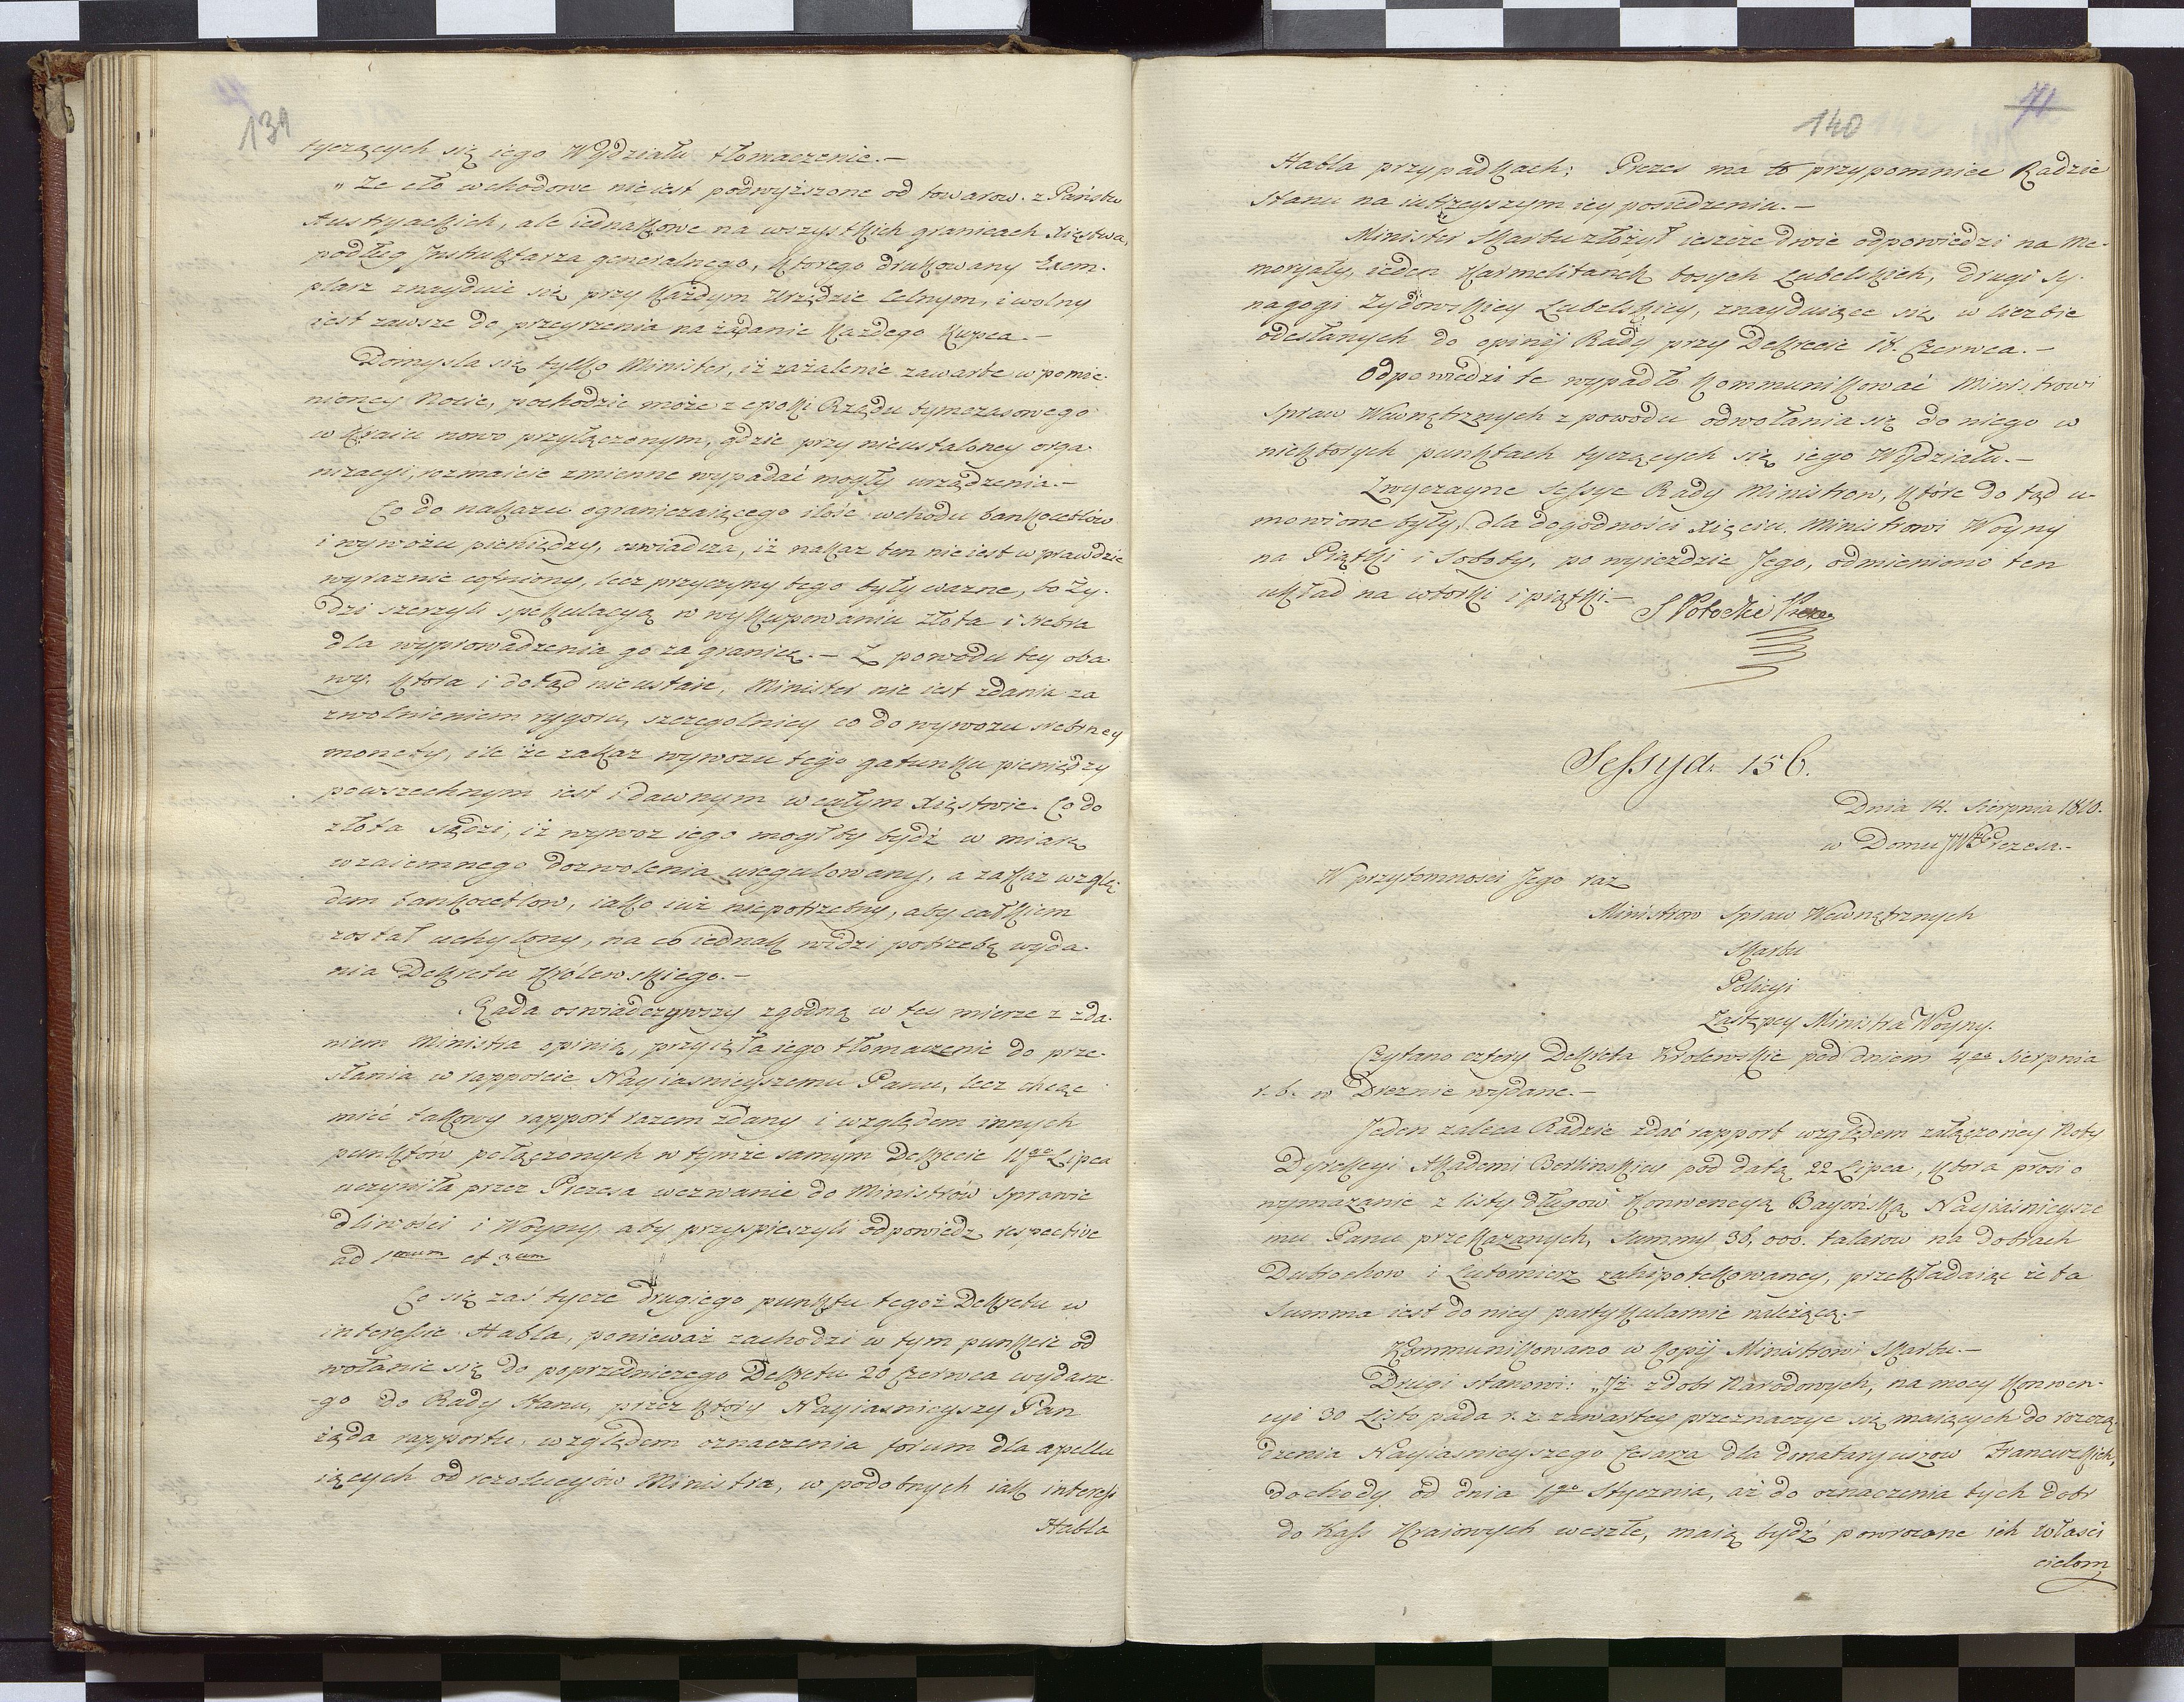 139
tyczących się iego Wydziału tłomaczenie.—
„Ze cło wchodowe nieiest podwyższone od towarow z Państw
Austryackich, ale iednakowe na wszystkich granicach Xięstwa,
podług Instruktarza generalnego, ktorego drukowany Exem-
plarz znayduie się przy każdym Urzędzie Celnym, i wolny
iest zawsze do przeyrzenia na żądanie każdego kupca.—
Domysla się tylko Minister, iż zażalenie zawarte w pomie-
nioney Nocie, pochodzić może z epoki Rządu tymczasowego
w kraiu nowo przyłączonym, gdzie przy nieustaloney orga-
nizacyi, rozmaicie zmienne wypadać mogły urządzenia.—
Co do nakazu ograniczaiącego ilość wchodu bankocetlów
i wywozu pieniędzy, oswiadcza, iż nakaz ten nieiest w prawdzie
wyraznie cofniony, lecz przyczyny tego były ważne, bo Ży-
dzi szerzyli spekulacyą w wykupowaniu złota i srebra
dla wyprowadzenia go za granicę.— Z powodu tey oba
wy, ktora i dotąd nieustaie, Minister nie iest zdania za
zwolnieniem rygoru, szczegolniey co do wywozu srebrney
monety, ile że zakaz wywozu tego gatunku pieniędzy
powszechnym iest i dawnym w całym Xięstwie. Co do
złota sądzi, iż wywoz iego mogłby bydź w miarę
wzaiemnego dozwolenia uregulowany, a zakaz wzglę-
dem bankocetlow, iako iuż niepotrzebny, aby całkiem
został uchylony, na co iednak widzi potrzebę wyda-
nia Dekretu Królewskiego.—
Rada oswiadczywszy zgodną w tey mierze z zda-
niem Ministra opinią, przyięła iego tłomaczenie do prze-
słania w rapporcie Nayiasnieyszemu Panu, lecz chcąc
mieć takowy rapport razem zdany i względem innych
punktów połączonych w tymże samym Dekrecie 11go Lipca
uczyniła przez Prezesa wezwanie do Ministrów Sprawie
dliwości i Woyny, aby przyspieszyli odpowiedz respective
ad 1mum et 3um
Co się zaś tycze drugiego punktu tegoż Dekretu w
interessie Habla, ponieważ zachodzi w tym punkcie od
wołanie się do poprzedniczego Dekretu 20 Czerwca wydane-
-go do Rady Stanu, przez który Nayiasnieyszy Pan
żąda rapportu, względem oznaczenia forum dla apellu
iących od rezolucyiów Ministra, w podobnych iak interess
Habla
71
140
Habla przypadkach: Prezes ma to przypomniec Radzie
Stanu na iutrzeyszym iey posiedzeniu.—
Minister Skarbu złożył ieszcze dwie odpowiedzi na Me-
moryały, ieden Karmelitanek bosych Lubelskich, drugi Sy-
nagogi Zydowskiey Lubelskiey, znayduiące się w liczbie
odesłanych do opinij Rady przy Dekrecie 18. Czerwca.—
Odpowiedzi te wypadło kommunikować Ministrowi
Spraw Wewnętrznych z powodu odwołania się do niego w
niektorych punktach tyczących się iego Wydziału.—
Zwyczayne Sessye Rady Ministrow, które do tąd u-
mowione były, dla dogodności Xięciu Ministrowi Woyny
na Piątki i Soboty, po wyieździe Jego, odmieniono ten
układ na wtorki i piątki.— S Potocki Prezes
Sessya 156.
Dnia 14. Sierpnia 1810.
w Domu JW Prezesa.—
W przytomności Jego raz
Ministrow Spraw Wewnętrznych
Skarbu
Policyi
Zastępcy Ministra Woyny.
Czytano cztery Dekreta Krolewskie pod dniem 4go Sierpnia
r. b. w Dreznie wydane.—
Jeden zaleca Radzie zdać rapport względem załączoney Noty
Dyrekcyi Akademi Berlinskiey pod datą 22 Lipca, ktora prosi o
wymazanie z listy długow Konwencyą Bayońską Nayiaśnieysze
mu Panu przekazanych, Summy 36,000. talarow na dobrach
Dubrochow i Lutomierz zahipotekowaney, przekładaiąc że ta
Summa iest do niey partykularnie należącą.—
Kommunikowano w kopij Ministrowi Skarbu.—
Drugi stanowi: „Jż z dobr Narodowych, na mocy Konwen-
cyi 30 Listopada r. z. zawartey przeznaczyc się maiących do rozrzą-
dzenia Nayiasnieyszego Cesarza dla donataryuszow Francuzkich,
dochody od dnia 1go Stycznia, aż do oznaczenia tych dobr
do Kass Kraiowych weszłe, maią bydź powrocone ich własci
cielom